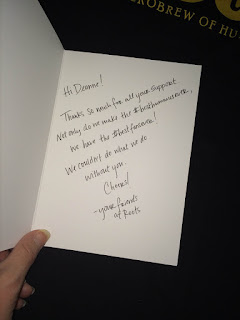 ROBREW OF HU
Hi Deanne!
Thanks so much for all your support
Not only do we make the #besthummusever,
we have the #bestfansever!
We couldn't do what we do
without you.
Cheers!
-your friends
at Roots